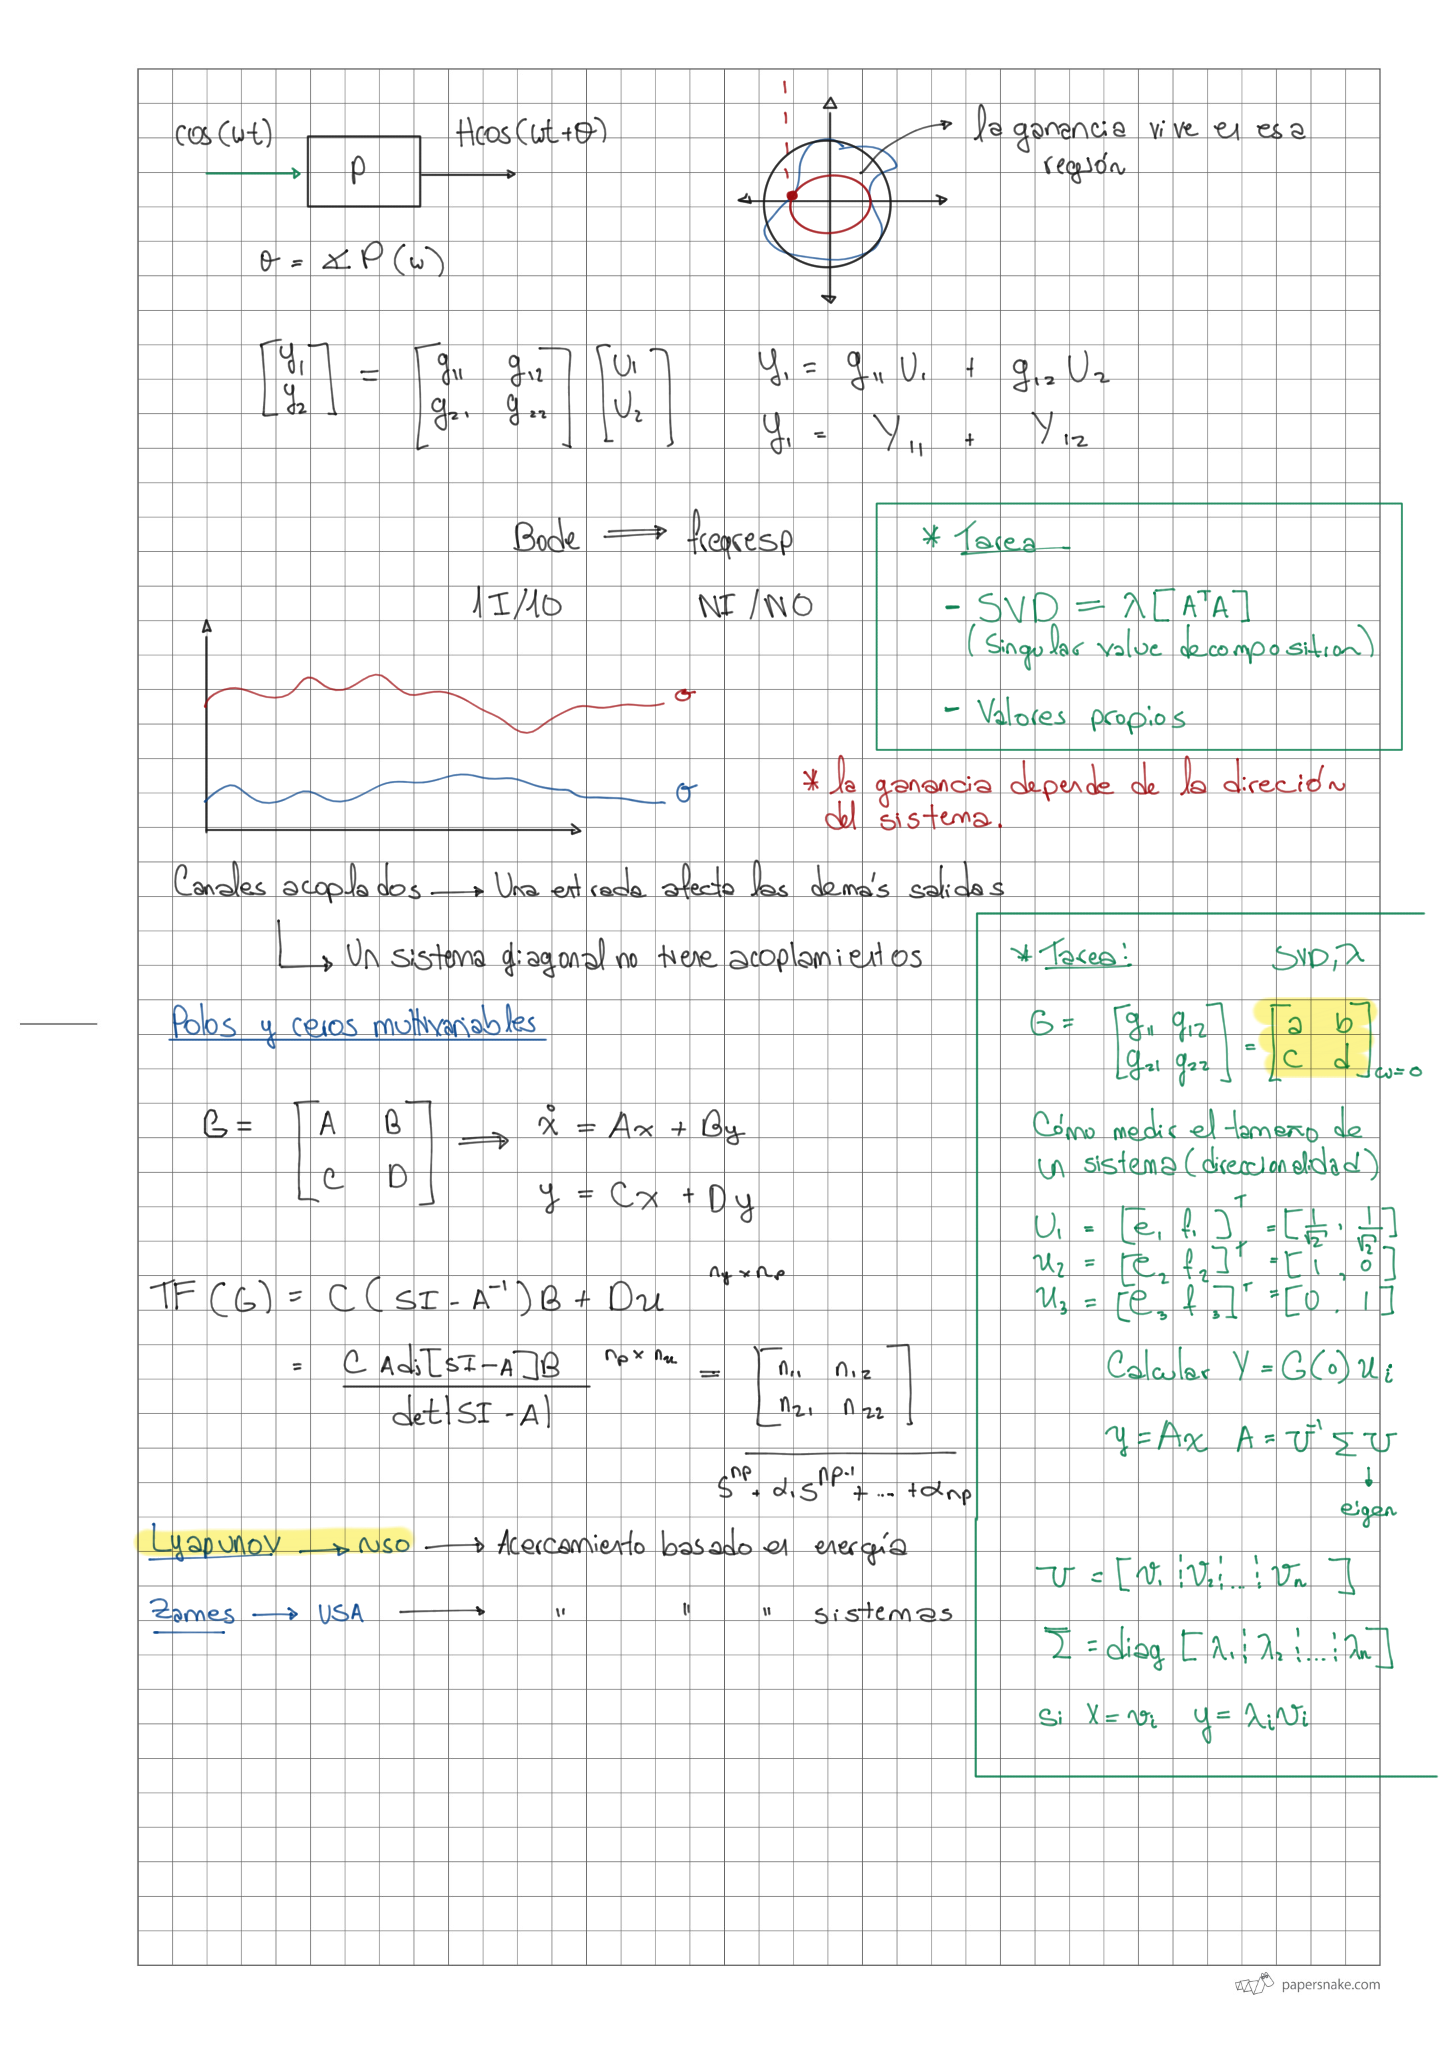 cos(wt)
Hcos(wt+θ)
P
la ganancia vive en esa
región
θ = ∡P(w)
[y1 y2] = [g11 g12 g21 g22] [U1 U2]
y1 = g11 U1 + g12 U2
y1 = Y11 + Y12
Bode ⟹ freqresp
1I/1O NI/NO
* Tarea
- SVD = λ[AᵀA]
(Singular value decomposition)
- Valores propios
σ
σ
* la ganancia depende de la direción
del sistema.
Canales acoplados → Una entrada afecta las demás salidas
↳ Un sistema diagonal no tiene acoplamientos
Polos y ceros multivariables
G = [A B C D] ⟹ ẋ = Ax + By
y = Cx + Dy
TF(G) = C(SI-A⁻¹)B + Du ny×np
= C Adj[SI-A]B / det|SI-A| np×nu = [n11 n12 n21 n22] / S^np + α1S^np-1 + ... + αnp
Lyapunov → NSO → Acercamiento basado en energía
Zames → USA → " " " sistemas
* Tarea: SVD, λ
G = [g11 g12 g21 g22] = [a b c d] ω=0
Cómo medir el tamaño de
un sistema (direccionalidad)
U1 = [e1 f1]ᵀ = [1/√2, 1/√2]
u2 = [e2 f2]ᵀ = [1, 0]
u3 = [e3 f3]ᵀ = [0, 1]
Calcular Y = G(0)ui
y = Ax A = U⁻¹ Σ U
↓
eigen
U = [v1 ⋮ v2 ⋮ ... ⋮ vn]
Σ = diag [λ1 ⋮ λ2 ⋮ ... ⋮ λn]
si X = vi y = λivi
papersnake.com